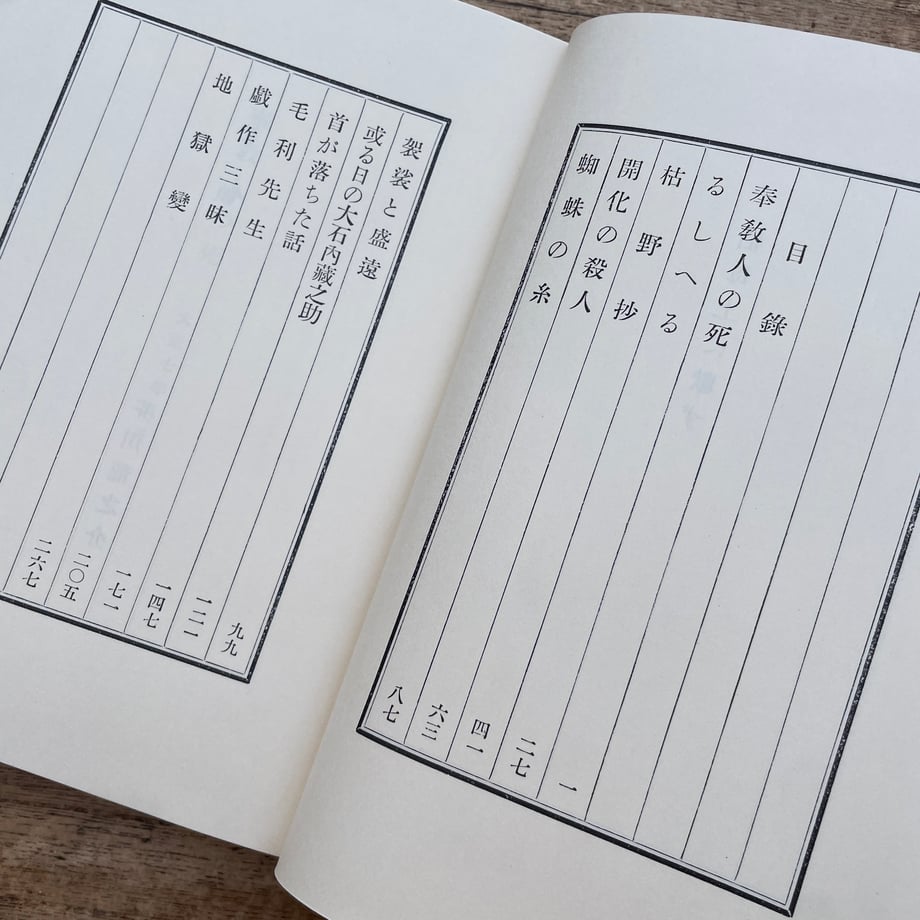 目錄
奉敎人の死 一
るしへる 二七
枯野抄 四一
開化の殺人 六三
蜘蛛の糸 八七
袈裟と盛遠 九九
或る日の大石內藏之助 一二一
首が落ちた話 一四七
毛利先生 一七一
戯作三昧 二〇五
地獄變 二六七